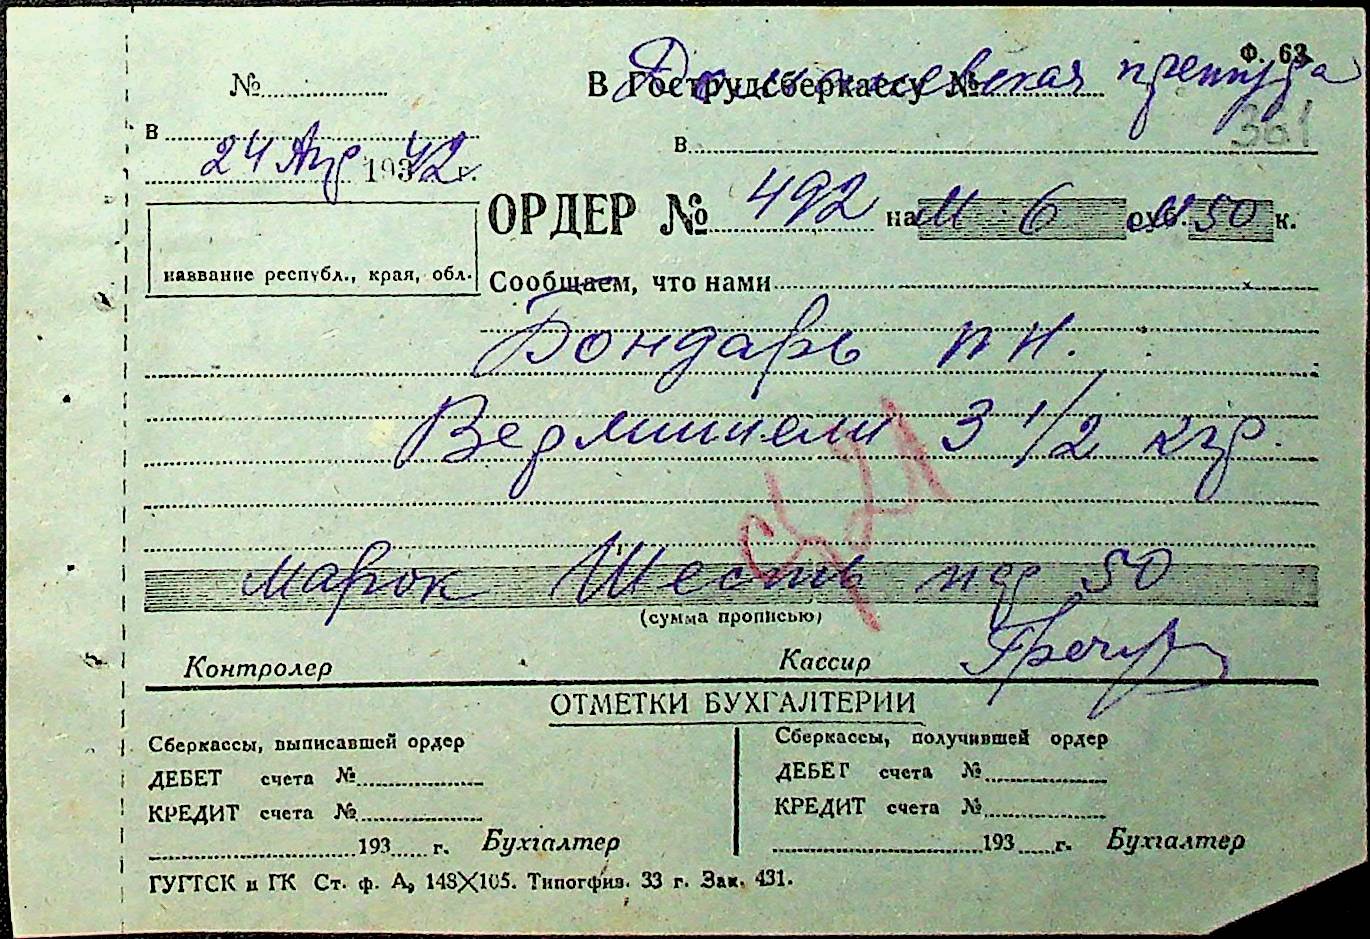 Ф. 63.
№ В Гострудсберкассу № преттура
361
в в
24 Апр 193 42 г.
ОРДЕР № 492 на М 6 руб. 50 к.
название республ., края, обл.
Сообщаем, что нами
Бондарь П Н.
Вермишели 3 1/2 кгр.
марок Шесть пф 50
(сумма прописью)
Контролер Кассир
ОТМЕТКИ БУХГАЛТЕРИИ
Сберкассы, выписавшей ордер Сберкассы, получившей ордер
ДЕБЕТ счета № ДЕБЕТ счета №
КРЕДИТ счета № КРЕДИТ счета №
193 г. Бухгалтер 193 г. Бухгалтер
ГУГТСК и ГК Ст. ф. А, 148×105. Типогфив. 33 г. Зак. 431.